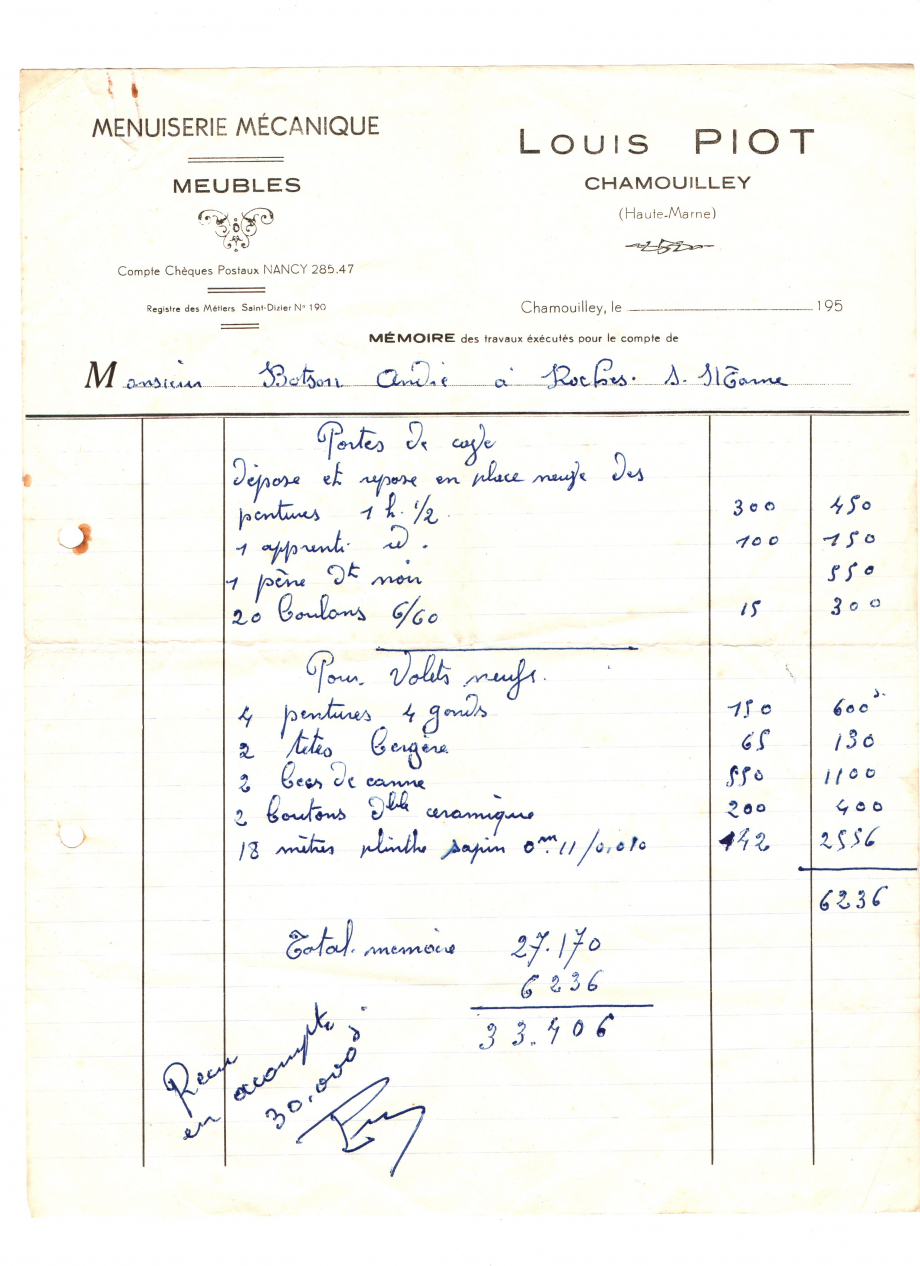 MENUISERIE MÉCANIQUE
MEUBLES
Compte Chèques Postaux NANCY 285.47
Registre des Métiers Saint-Dizier N° 190
LOUIS PIOT
CHAMOUILLEY
(Haute-Marne)
Chamouilley, le 195
MÉMOIRE des travaux éxécutés pour le compte de
Monsieur Botson André à Roches. s. Marne
Portes de
dépose et repose en place neuve des
pentures 1 h. 1/2. 300 450
1 apprenti id. 100 150
1 pène dt noir 550
20 boulons 6/60 15 300
Pour Volets neufs.
4 pentures 4 gonds 150 600
2 têtes bergère 65 130
2 becs de canne 550 1100
2 boutons dble ceramique 200 400
18 mètres plinthe sapin 0m.11/0,010 142 2556
6236
Total. memoire 27.170
6236
33.406
Recu
en acompte
30.000